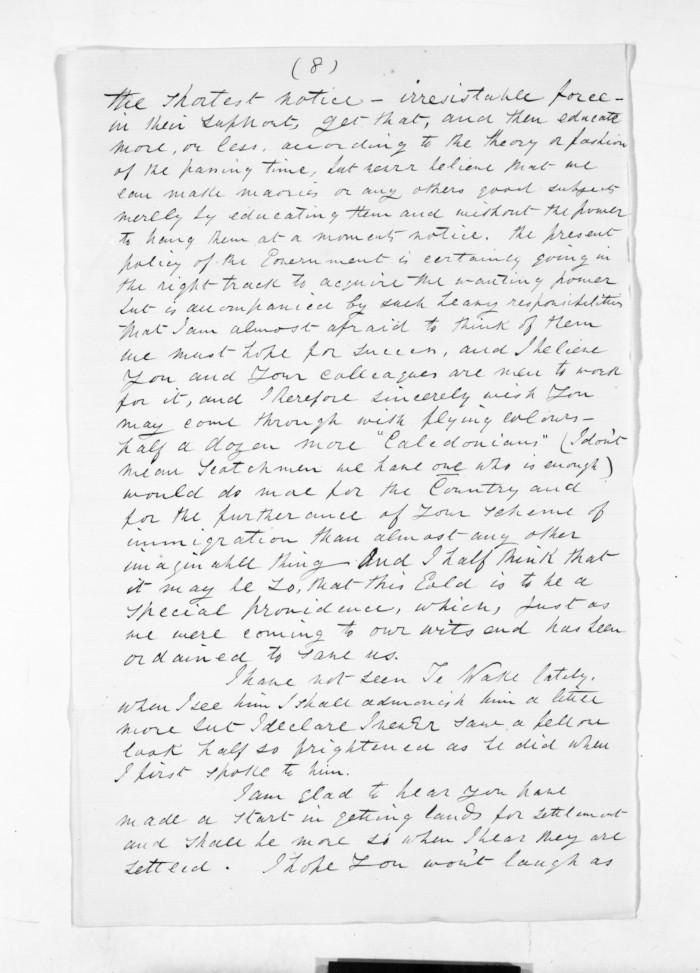 (8)
the shortest notice – irresistable force –
in their support, get that, and then educate
more, or less, according to the theory or fashion
of the passing time, but never believe that we
can make maories or any others good subjects
merely by educating them and without the power
to hang them at a moments notice. the present
policy of the Government is certainly going in
the right track to acquire the wanting power
but is accompanied by such heavy responsibilities
that I am almost afraid to think of them
we must hope for success, and I believe
You and Your colleagues are men to work
for it, and I therefore sincerely wish You
may come through with flying colours –
half a dozen more "Caledonians" (I don't
mean Scotchmen we have one who is enough)
would do more for the Country and
for the furtherance of Your scheme of
immigration than almost any other
imaginable thing And I half think that
it may be so, that this Gold is to be a
special providence, which, just as
we were coming to our wits end has been
ordained to save us.
I have not seen Te Wake lately.
when I see him I shall admonish him a little
more but I declare I never saw a fellow
look half so frightened as he did when
I first spoke to him.
I am glad to hear You have
made a start in getting lands for settlement
and shall be more so when I hear they are
settled. I hope You won't laugh as